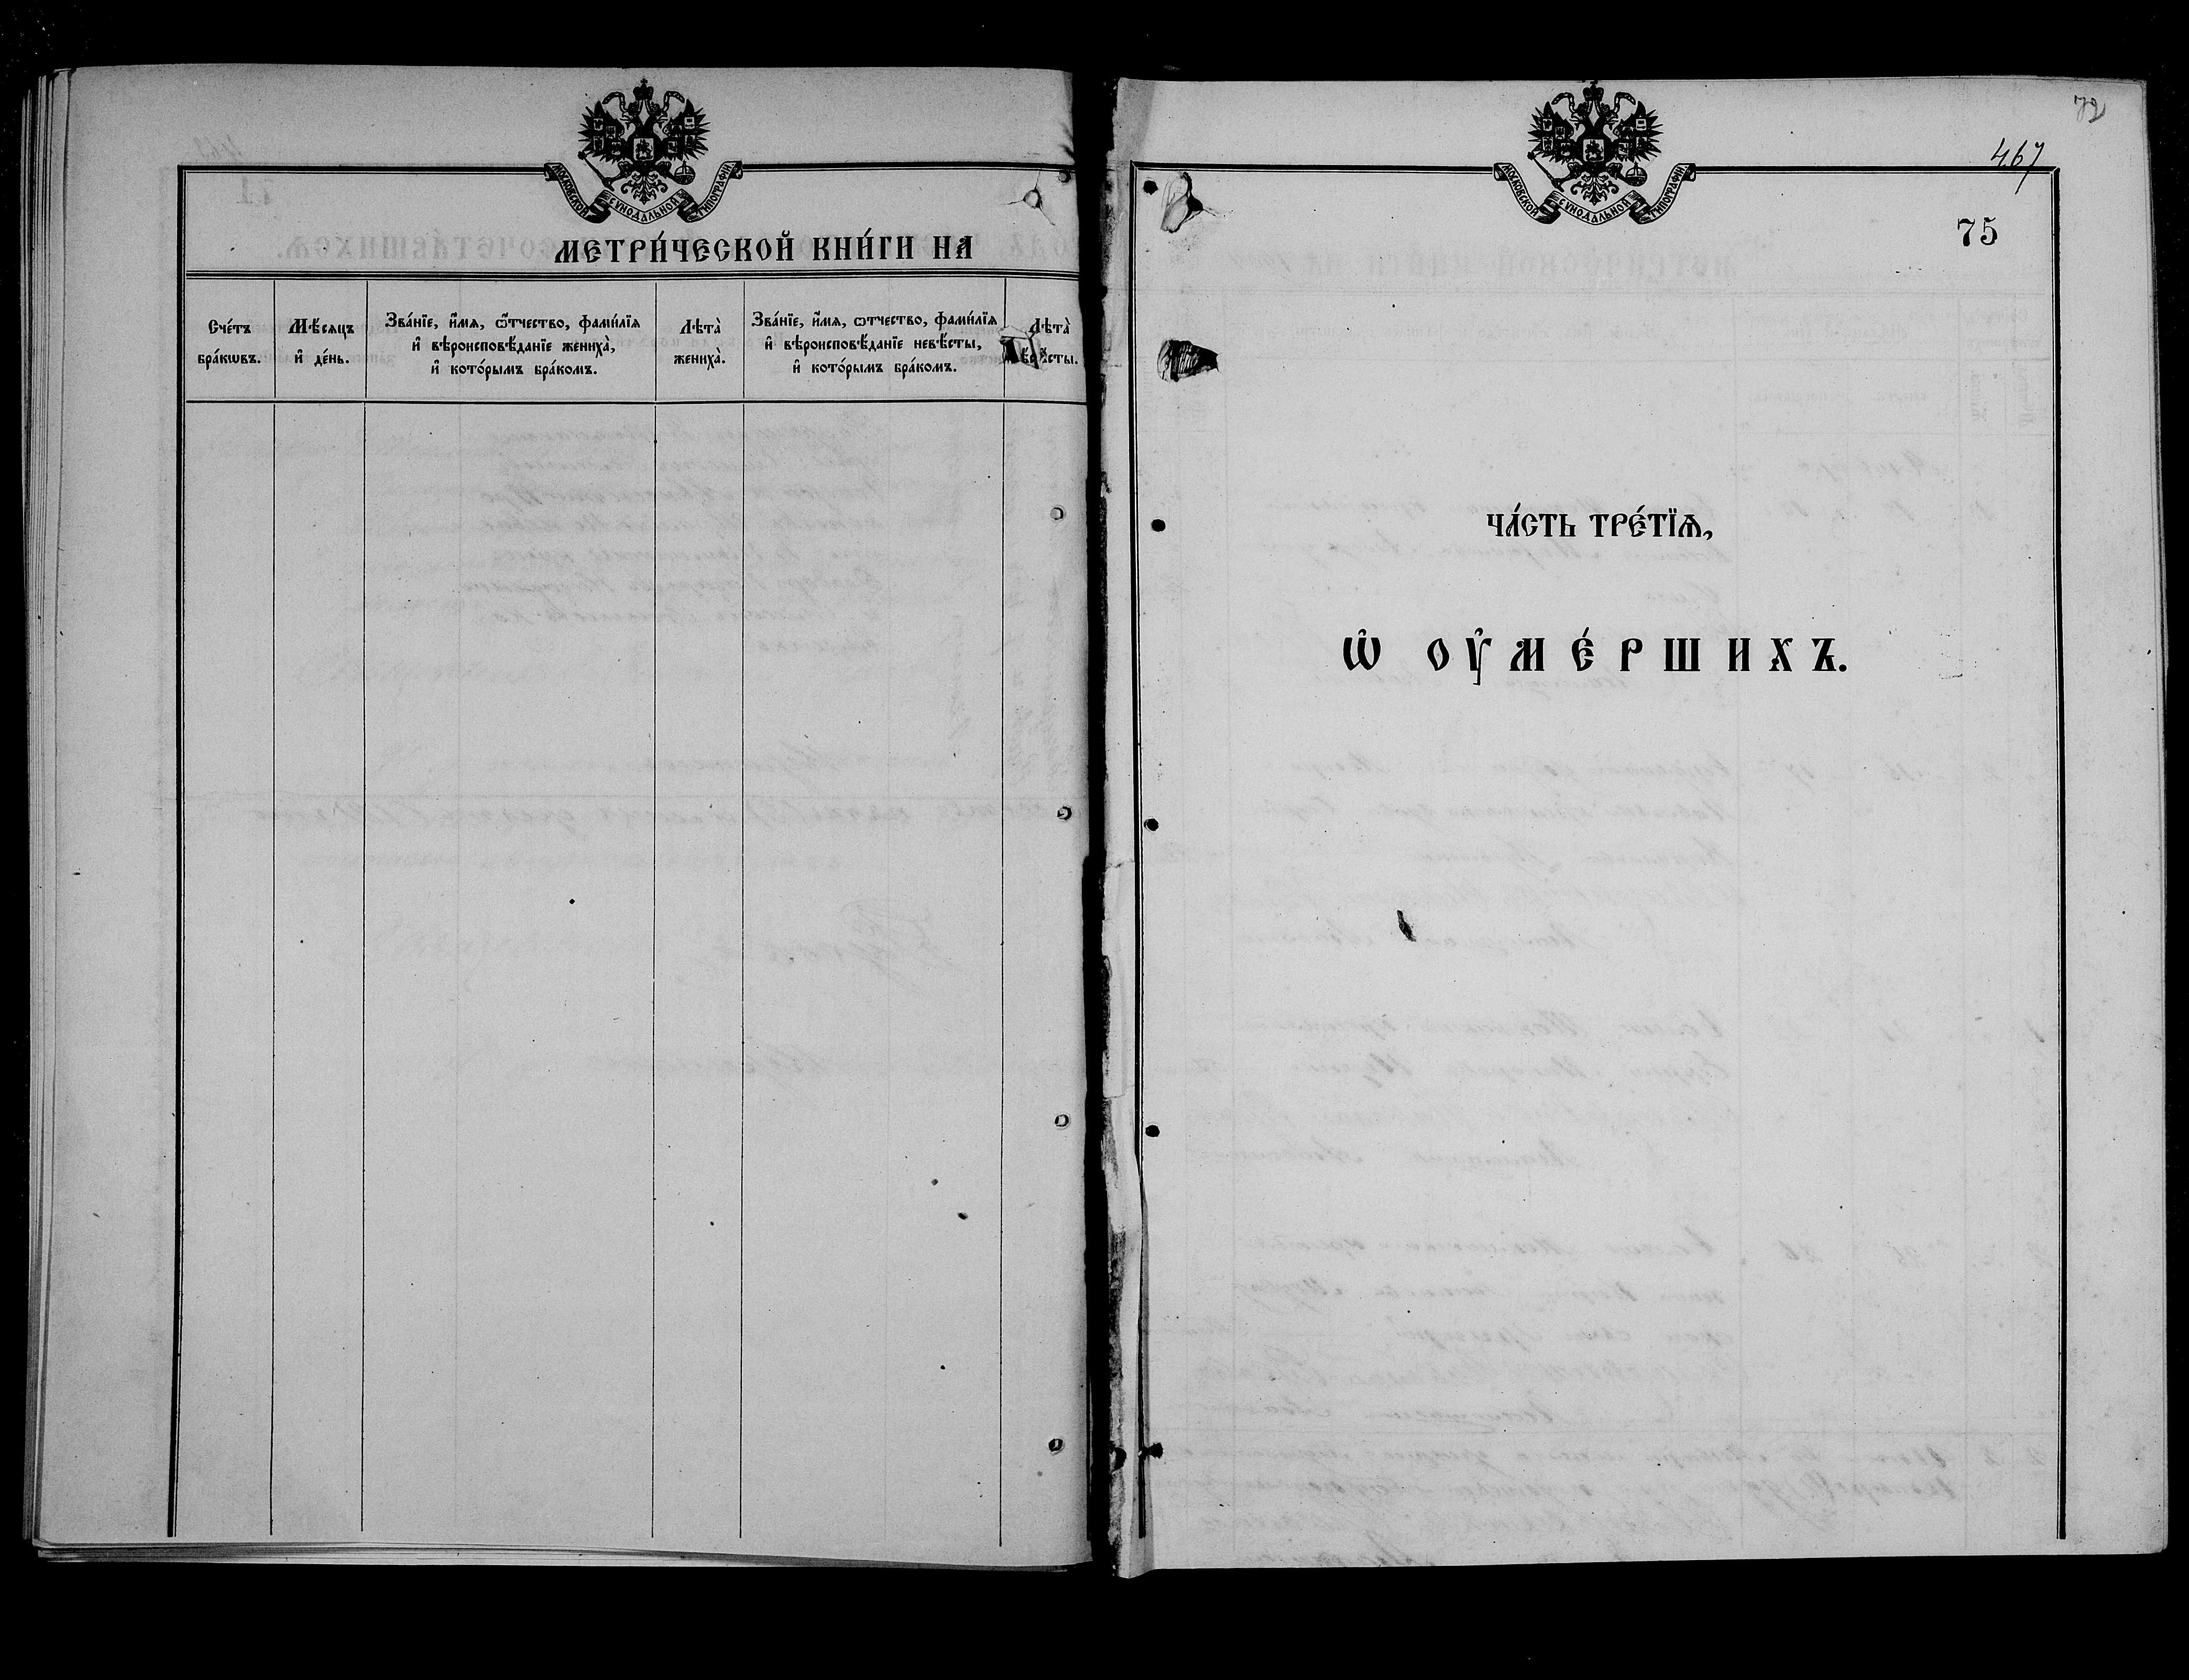 МОСКОВСКОЙ СѴНОДАЛЬНОЙ ТИПОГРАФІИ.
МЕТРИ́ЧЕСКОЙ КНИ́ГИ НА
Сче́тъ
бра́кѡвъ.
Мѣ́сяцъ
и҆ де́нь.
Зва́нїе, и҆́мѧ, ѻ҆́тчество, фами́лїѧ
и҆ вѣроисповѣ́данїе жениха̀,
и҆ кото́рымъ бра́комъ.
Лѣта̀
жениха̀.
Зва́нїе, и҆́мѧ, ѻтчество, фами́лїѧ
и҆ вѣроисповѣ́данїе невѣ́сты,
и҆ кото́рымъ бра́комъ.
Лѣта̀
72
467
МОСКОВСКОЙ СѴНОДАЛЬНОЙ ТИПОГРАФІИ.
75
ЧА́СТЬ ТРЕ́ТЇѦ,
Ѡ҆ ОУ҆МЕ́РШИХЪ.